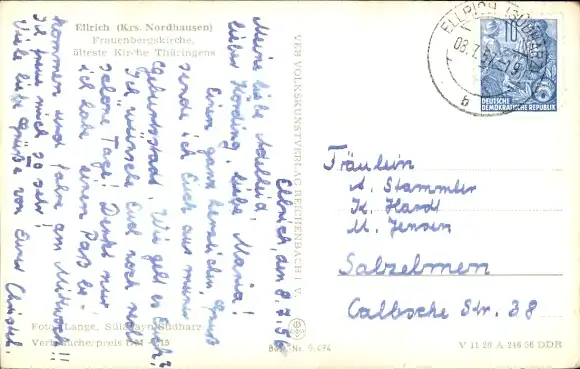 Ellrich (Krs. Nordhausen)
Frauenbergskirche,
älteste Kirche Thüringens
Ellrich, den 8.7.56
Meine liebe
liebes liebe Maria!
Einen ganz herzlichen Gruß
sende ich Euch aus meiner
Geburtsstadt. Wie geht es Euch?
Ich wünsche Euch noch viele
schöne Tage! Denkt nur
ich habe einen Paß be-
kommen und fahre am Mittwoch!!
Ich freue mich so sehr!
Viele liebe Grüße von Eurer Christel.
Foto: Lange, Sülzhayn-Südharz
Verbraucherpreis DM 0,15
VEB VOLKSKUNSTVERLAG REICHENBACH I. V.
Best.-Nr. 9,434
ELLRICH (SÜDHARZ)
b
10
DEUTSCHE
DEMOKRATISCHE REPUBLIK
Fräulein
A. Stammler
K. Hardt
M. Jensen
Salzelmen
Calbsche Str. 38
V 11 28 A 246 56 DDR